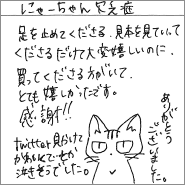 にゃーちゃん欠乏症
足を止めてくださる、見本を見ていって
くださるだけで大変嬉しいのに、
買ってくださる方がいて、
とても嬉しかったです。
感謝!!
ありがとう
ございました。
twitter見かけて
泣きそうでした。